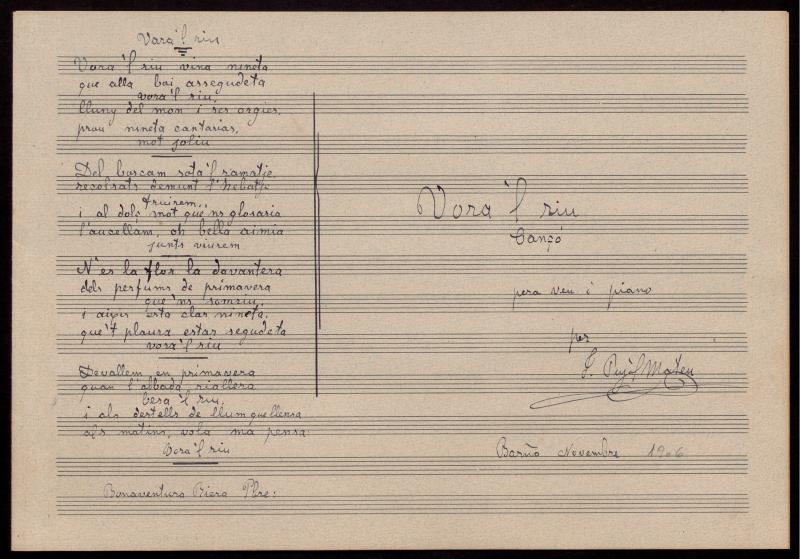 Vora'l riu
Vora'l riu vina nineta
que alla bai assegudeta
vora'l riu,
lluny del mon i ses orgies,
prou nineta cantarias,
mot joliu
Del boscam sota'l ramatje
recolsats demunt l'hebatje
fruirem,
i al dols mot que'ns glosaria
l'aucellám, oh bella aimia
junts viurem
N'es la flor la davantera
dels perfums de primavera
que'ns somriu,
i aixis esta clar nineta,
que't plaura estar segudeta
vora'l riu
Devallem en primavera
quan l'albada riallera
besa'l riu,
i als destells de llum quellensa
als matins, vola ma pensa
Vora'l riu
Bonaventura Riera Pbre:
Vora'l riu
Cançó
pera veu i piano
per
F. Pujól Mateu
Barña Novembre 1906